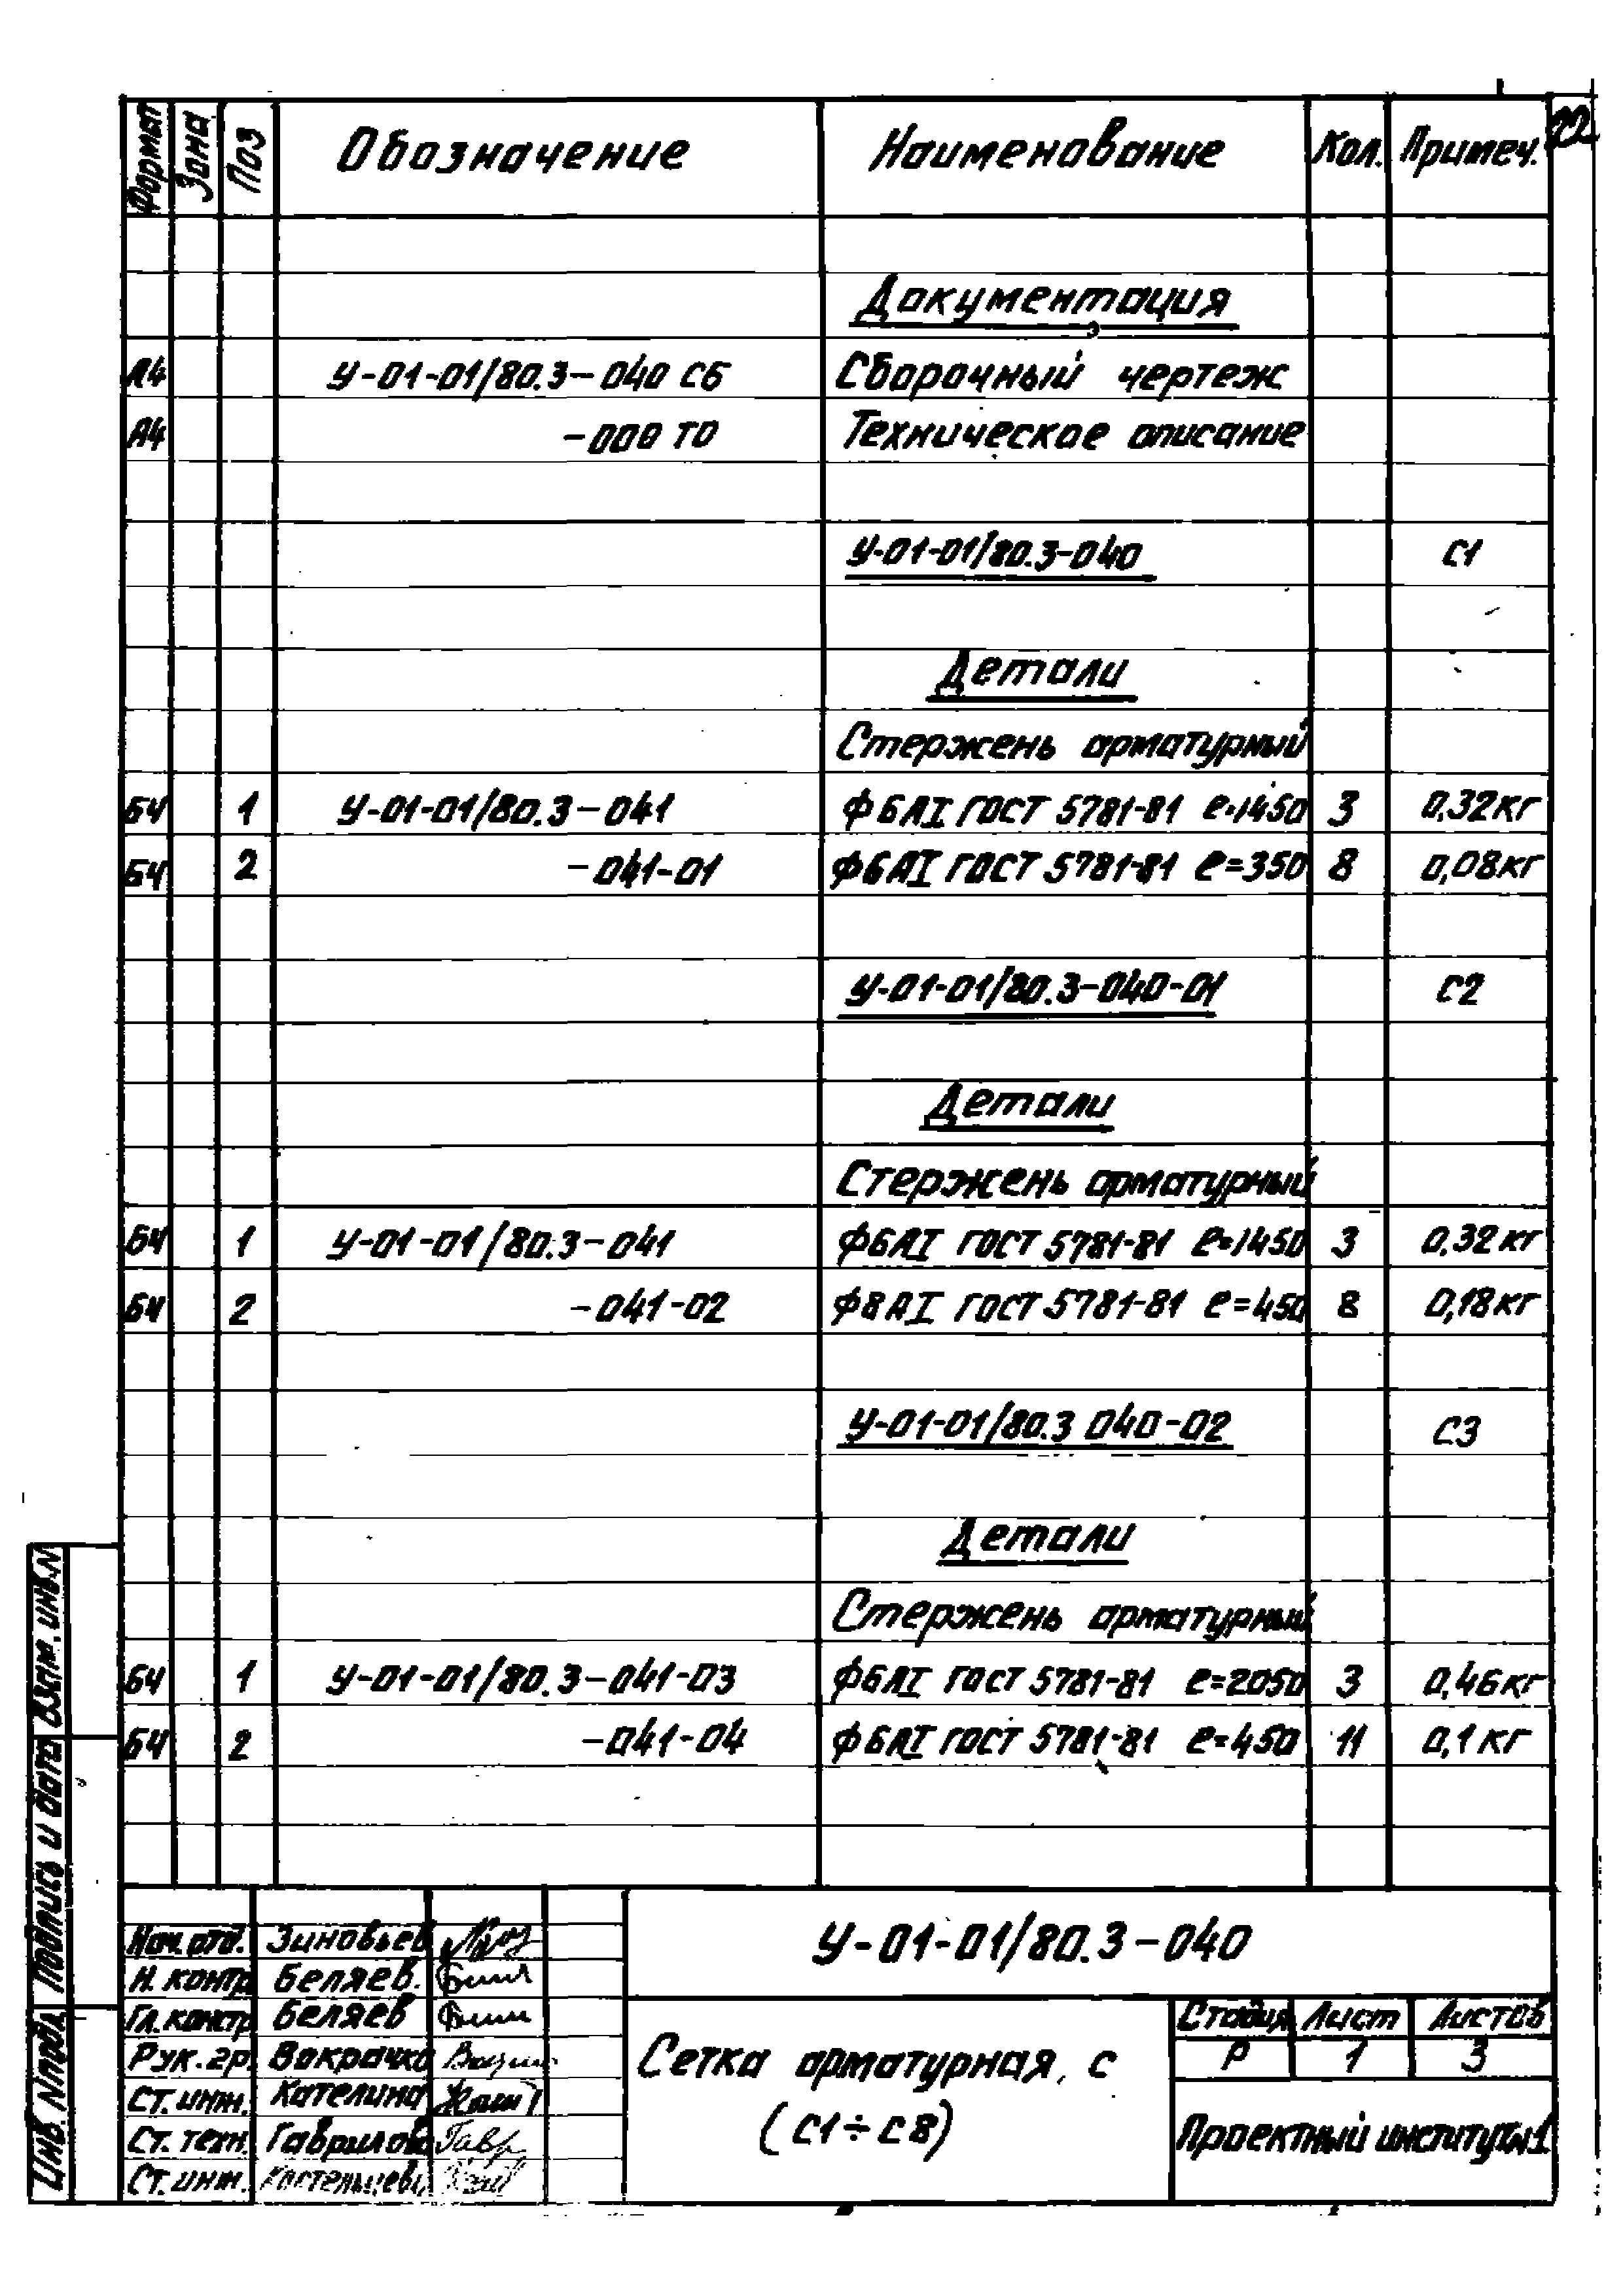 22
Формат Зона Поз Обозначение Наименование Кол. Примеч.
Документация
А4 У-01-01/80.3-040 СБ Сборочный чертеж
А4 -000 ТО Техническое описание
У-01-01/80.3-040 С1
Детали
Стержень арматурный
БЧ 1 У-01-01/80.3-041 Ф6АI ГОСТ 5781-81 e=1450 3 0,32кг
БЧ 2 -041-01 Ф6АI ГОСТ 5781-81 e=350 8 0,08кг
У-01-01/80.3-040-01 С2
Детали
Стержень арматурный
БЧ 1 У-01-01/80.3-041 Ф6АI ГОСТ 5781-81 e=1450 3 0.32кг
БЧ 2 -041-02 Ф8АI ГОСТ 5781-81 e=450 8 0,18кг
У-01-01/80.3 040-02 С3
Детали
Стержень арматурный
БЧ 1 У-01-01/80.3-041-03 Ф6АI ГОСТ 5781-81 e=2050 3 0,46кг
БЧ 2 -041-04 Ф6АI ГОСТ 5781-81 e=450 11 0,1кг
Взам. инв. N
Подпись и дата
Инв. N подл.
Нач. отд. Зиновьев
Н. контр Беляев.
Гл. констр Беляев
Рук. гр. Вокрачко
Ст. инж. Кателина
Ст. техн. Гаврилова
Ст. инж.
У-01-01/80.3-040
Сетка арматурная, С
(С1÷С8)
Стадия Лист Листов
Р 1 3
Проектный институт N1